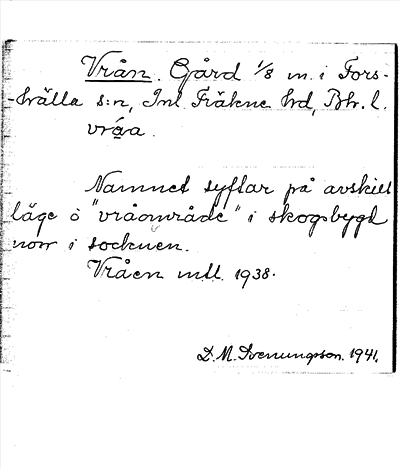 Vrån. Gård 1/8 m. i Fors-
-hälla s:n, Inl. Fräkne hd, Bh. l.
vråa.
Namnet syftar på avskilt
läge o "vråområde" i skogsbygd
norr i socknen.
Vråen mtl. 1938.
D. M. Svenungson. 1941.